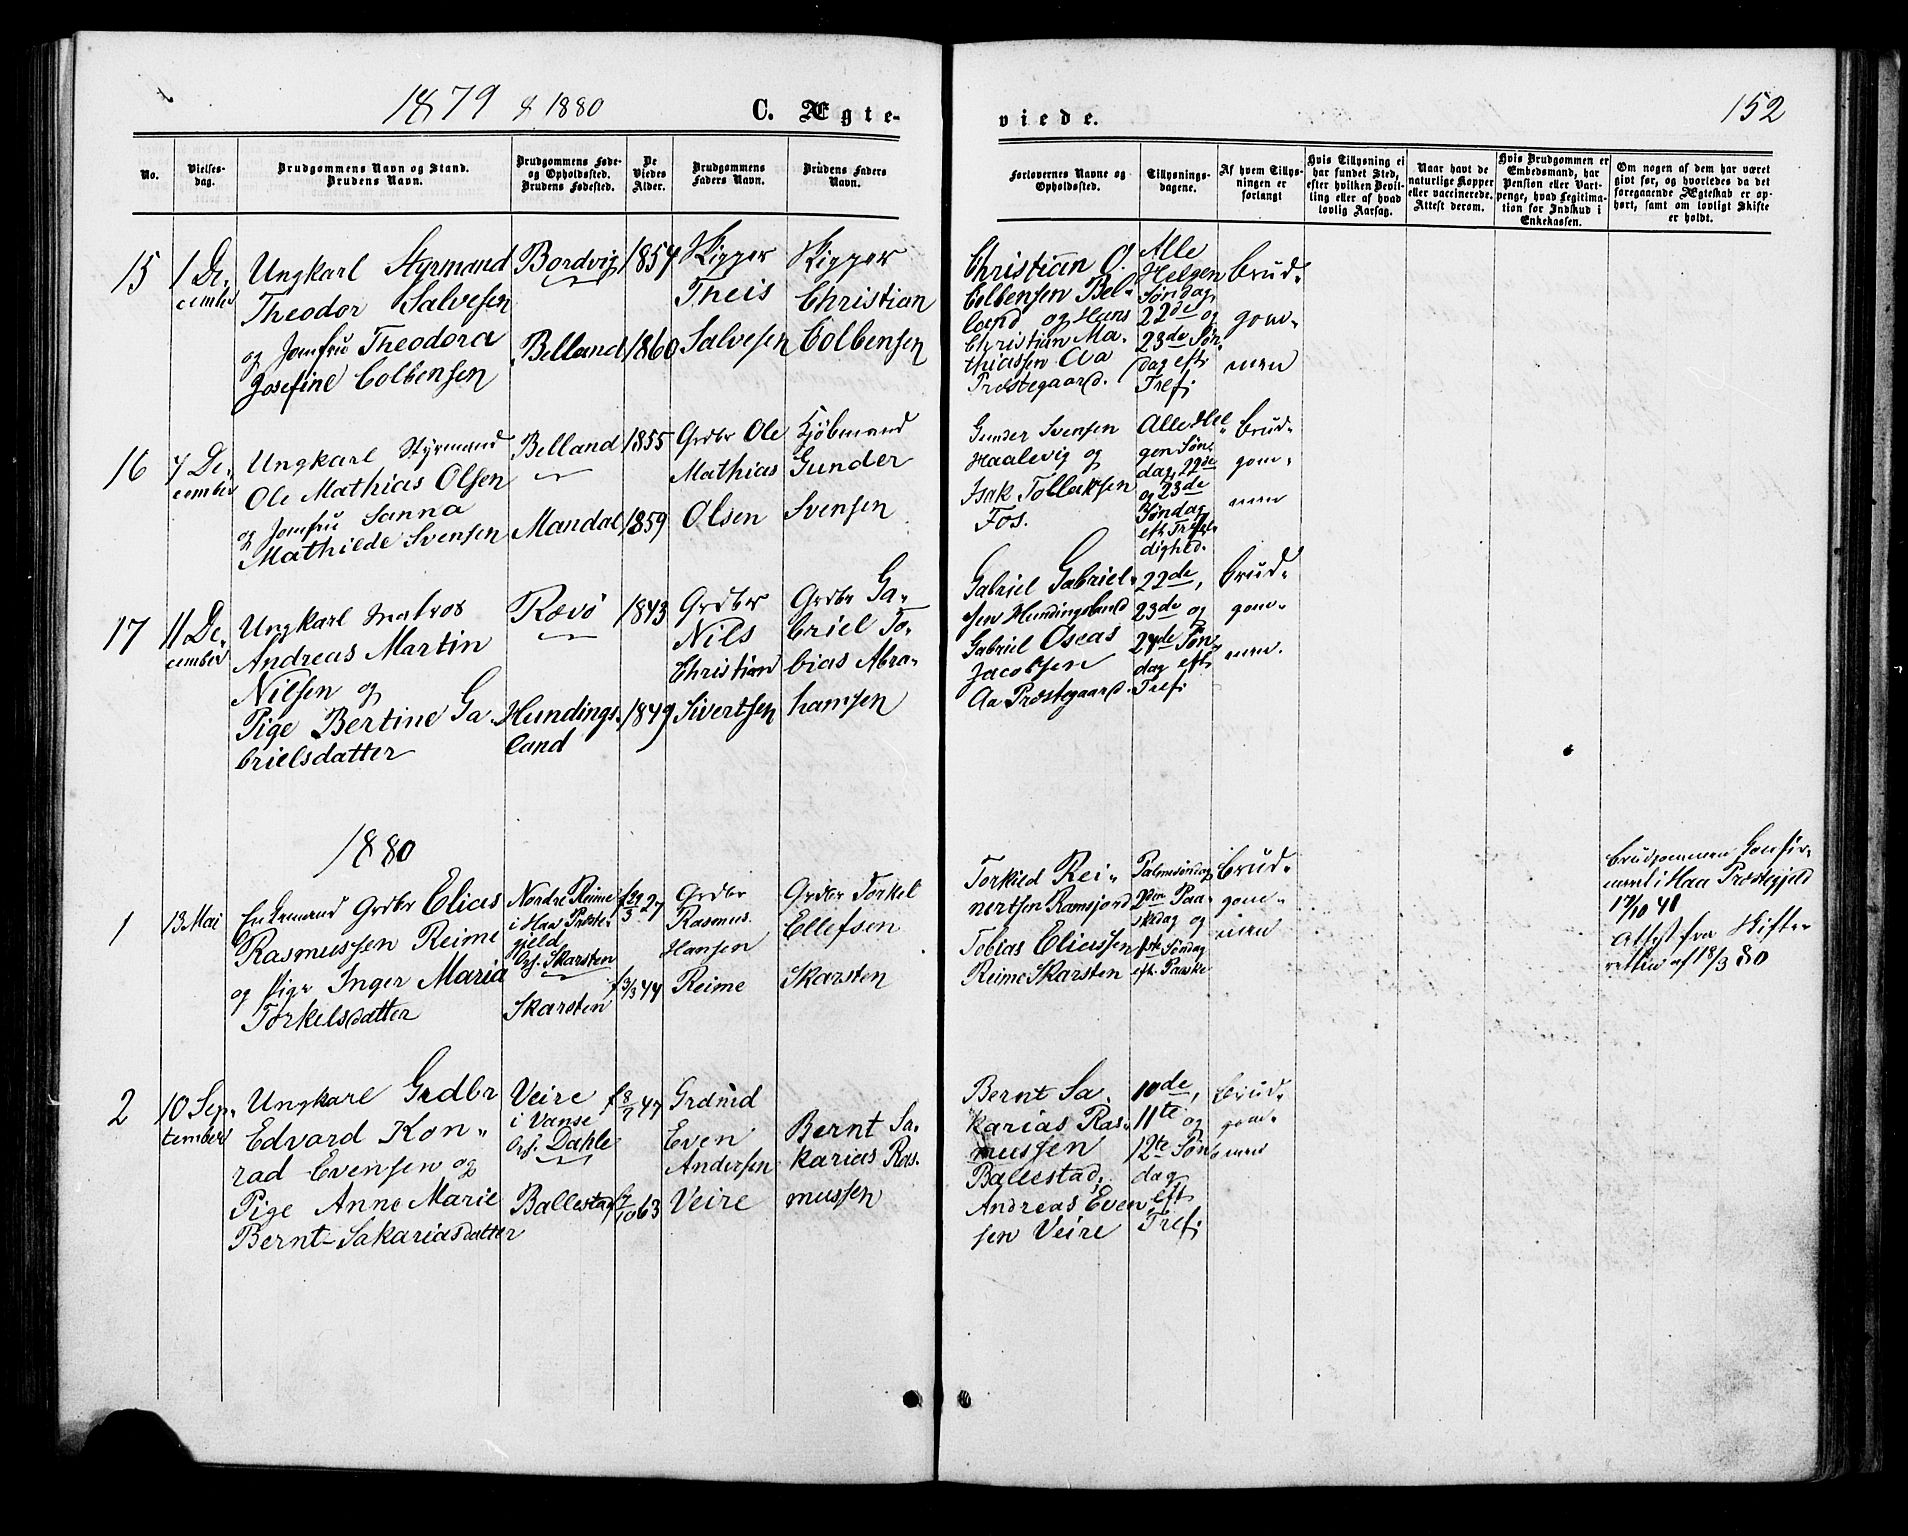 1879 & 1880
C. Ægte-
viede.
152
No.
Vielses-
dag.
Brudgommens Navn og Stand.
Brudens Navn.
Brudgommens Føde-
og Opholdssted.
Brudens Fødested.
De
Viedes
Alder.
Brudgommens
Faders Navn.
Brudens Faders
Navn.
Forlovernes Navne og
Opholdssted.
Tillysnings-
dagene.
Af hvem Tillys-
ningen er
forlangt
Hvis Tillysning ei
har fundet Sted,
efter hvilken Bevil-
ling eller af hvad
lovlig Aarsag.
Naar havt de
naturlige Kopper
eller vaccinerede.
Attest derom.
Hvis Brudgommen er
Embedsmand, har
Pension eller Vart-
penge, hvad Legitima-
tion for Indskud i
Enkekassen.
Om nogen af dem har været
givt før, og hvorledes da det
foregaaende Ægteskab er op-
hørt, samt om lovligt Skifte
er holdt.
15
1 De-
cember
Ungkarl Styrmand
Theodor Salvesen
og Jomfru Theodora
Josefine Colbensen
Bordvig
Belland
1854
1860
Skipper
Theis
Salvesen
Skipper
Christian
Colbensen
Christian O.
Colbensen Bel-
land og Hans
Christian Ma-
thiassen Aa
Præstegaard.
Alle
Helgen
Søndag
22de og
23de Søn-
dag eftr
Tref:
brud-
gom-
men
16
7 De-
cember
Ungkarl Styrmand
Ole Mathias Olsen
og Jomfru Sanna
Mathilde Svensen
Belland
Mandal
1855
1859
Grdbr Ole
Mathias
Olsen
Kjøbmand
Gunder
Svensen
Gunder Svensen
Haalevig og
Isak Tollaksen
Fos.
Alle Hel-
gen Søn-
dag, 22de
og 23de
Søndag
eft. Trefol-
dighed.
brud-
gom-
men
17
11 De-
cember
Ungkarl Matros
Andreas Martin
Nilsen og
Pige Bertine Ga-
brielsdatter
Rævø
Hundings-
land
1843
1849
Grdbr
Nils
Christian
Sivertsen
Grdbr Ga-
briel To-
bias Abra-
hamsen
Gabriel Gabriel-
sen Hundingsland
Gabriel Oseas
Jacobsen
Aa Præstegaard.
22de,
23de og
24de Søn-
dag eft
Tref:
brud-
gom-
men.
1880
1
13 Mai
Enkemand Grdbr Elias
Rasmussen Reime
og Pige Inger Maria
Torkelsdatter
Nordre Reime
i Haa Præste-
gjeld
Oph. Skarsten
Skarsten
f 29/3 27
f 3/3 44
Grdbr
Rasmus
Hansen
Reime
Grdbr Torkel
Ellefsen
Skarsten
Torkild Rei-
nertsen Ramsjord
Tobias Eliassen
Reime Skarsten
Palmesøndag
2den Paa-
skedag og
1ste Søndag
eft. Paaske
brud-
gom-
men
Brudgommen Confir-
meret i Haa Præstegjeld
Attest fra Skifte-
retten af 18/3 80
2
10 Sep-
tember
Ungkarl Grdbr
Edvard Kon-
rad Evensen og
Pige Anne Marie
Bernt-Sakariasdatter
Veire
i Vanse
Oph. Dahle
Ballestad
f 8/7 47
f 7/10 63
Grdmd
Even
Andersen
Veire
Bernt Sa-
karias Ras-
mussen
Bernt Sa-
karias Ras-
mussen
Ballestad,
Andreas Even-
sen Veire
10de,
11te og
12te Søn-
dag
eft
Tref:
brud-
gom-
men